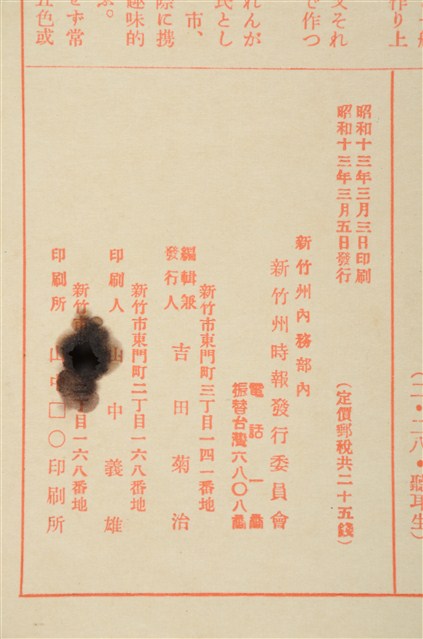 り上
文それ
で作つ
れんが
民とし
市、
際に携
趣味的
せず常
五色或
昭和十三年三月三日印刷
昭和十三年三月五日發行
(定價郵稅共二十五錢)
新竹州內務部內
新竹州時報發行委員會
電話一番
振替台灣六八〇八番
新竹市東門町三丁目一四一番地
編輯兼
發行人 吉田菊治
新竹市東門町二丁目一六八番地
印刷人 山中義雄
新竹 丁目一六八番地
印刷所 山中□〇印刷所
(二・二八・聽耳生)